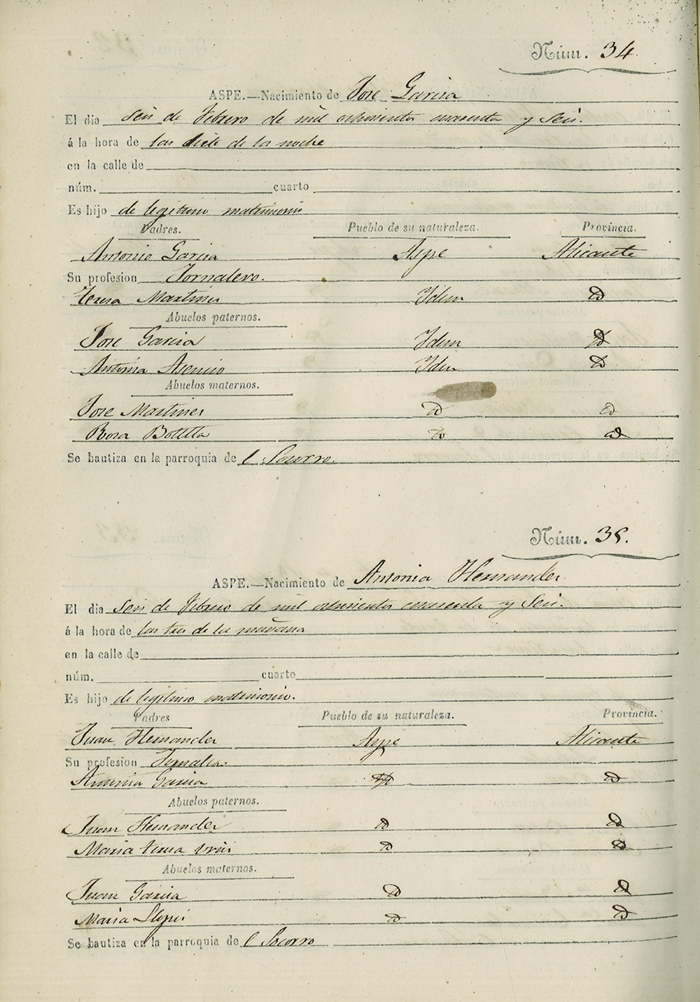 Núm. 34
ASPE.—Nacimiento de Jose Garcia
El dia seis de Febrero de mil ochocientos cuarenta y Seis.
á la hora de las siete de la noche
en la calle de
núm. cuarto
Es hijo de legitimo matrimonio
Padres. Pueblo de su naturaleza. Provincia.
Antonio Garcia Aspe Alicante
Su profesion Jornalero.
Teresa Martinez Idem id
Abuelos paternos.
Jose Garcia Idem id
Antonia Asencio Idem id
Abuelos maternos.
Jose Martinez id id
Rosa Botella id id
Se bautiza en la parroquia del Socorro.
Núm. 35.
ASPE.—Nacimiento de Antonia Hernandez
El dia seis de Febrero de mil ochocientos cuarenta y Seis.
á la hora de las tres de la mañana
en la calle de
núm. cuarto
Es hijo de legitimo matrimonio.
Padres Pueblo de su naturaleza. Provincia.
Juan Hernandez Aspe Alicante
Su profesion
Antonia Garcia id id
Abuelos paternos.
Juan Hernandez id id
Maria Teresa id id
Abuelos maternos.
Juan Garcia id id
Maria id id
Se bautiza en la parroquia del Socorro